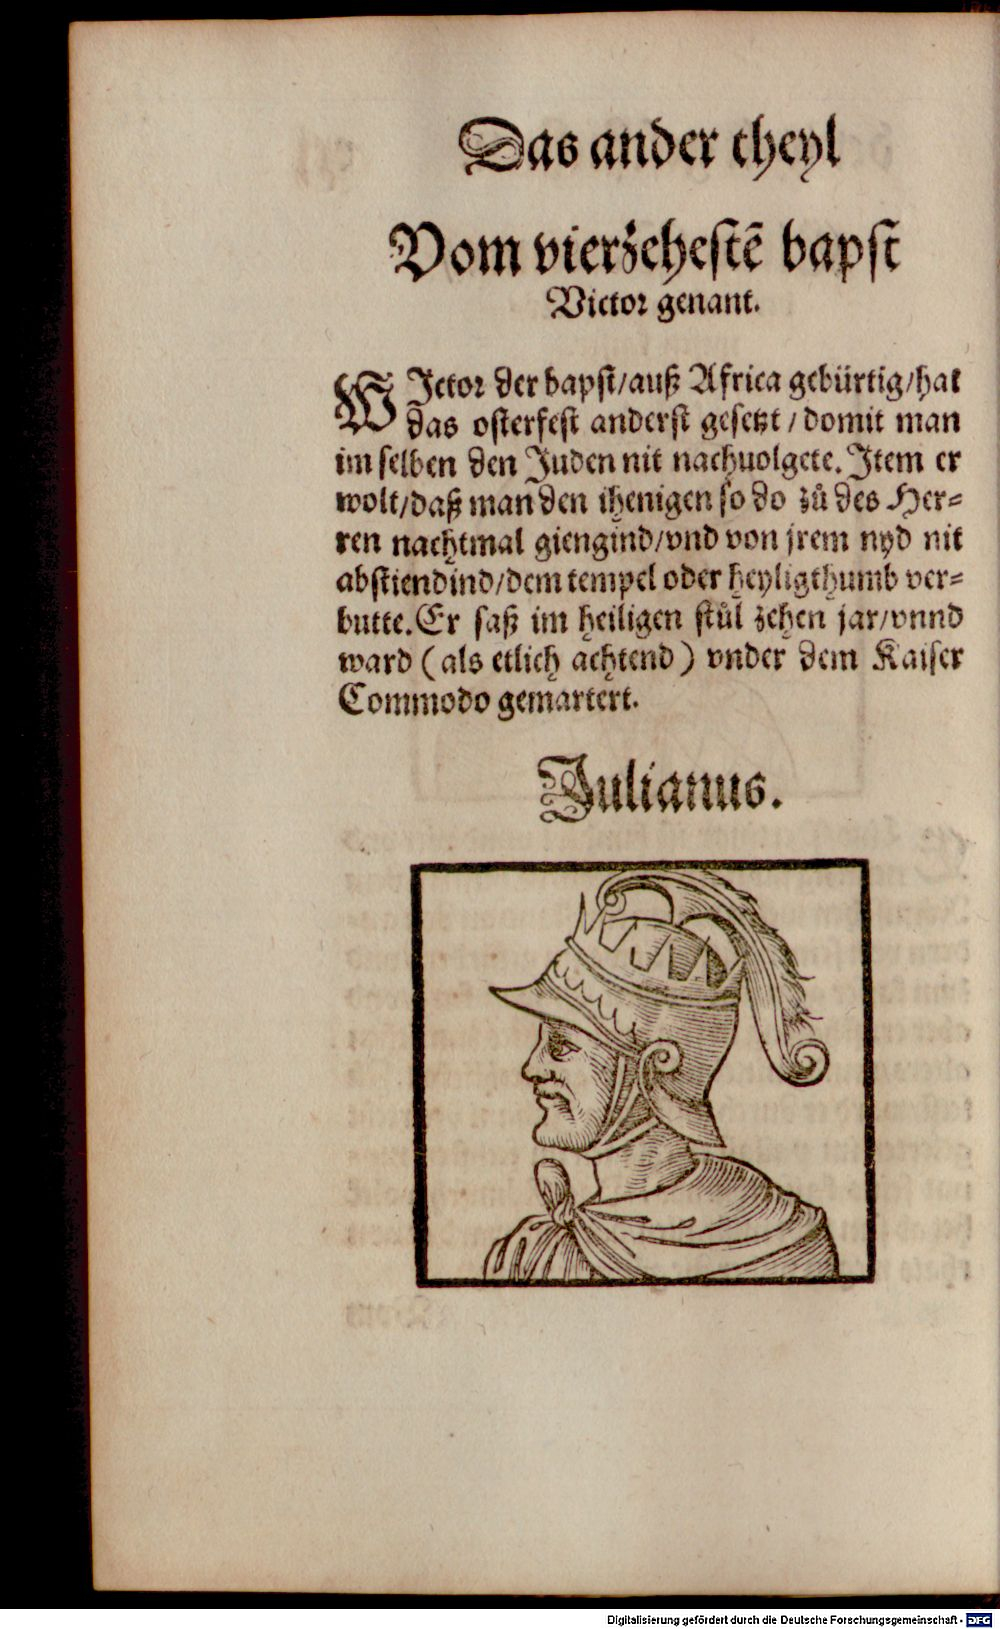 Das ander theyl
Vom vierzehestē bapst
Victor genant.
VJctor der bapst/auß Africa gebürtig/hat
das osterfest anderst gesetzt / domit man
im selben den Juden nit nachuolgete. Jtem er
wolt/daß man den ihenigen so do zů des Her-
ren nachtmal giengind/vnd von jrem nyd nit
abstiendind/dem tempel oder heyligthumb ver-
butte. Er saß im heiligen stůl zehen jar/vnnd
ward (als etlich achtend) vnder dem Kaiser
Commodo gemartert.
Julianus.
Digitalisierung gefördert durch die Deutsche Forschungsgemeinschaft - DFG